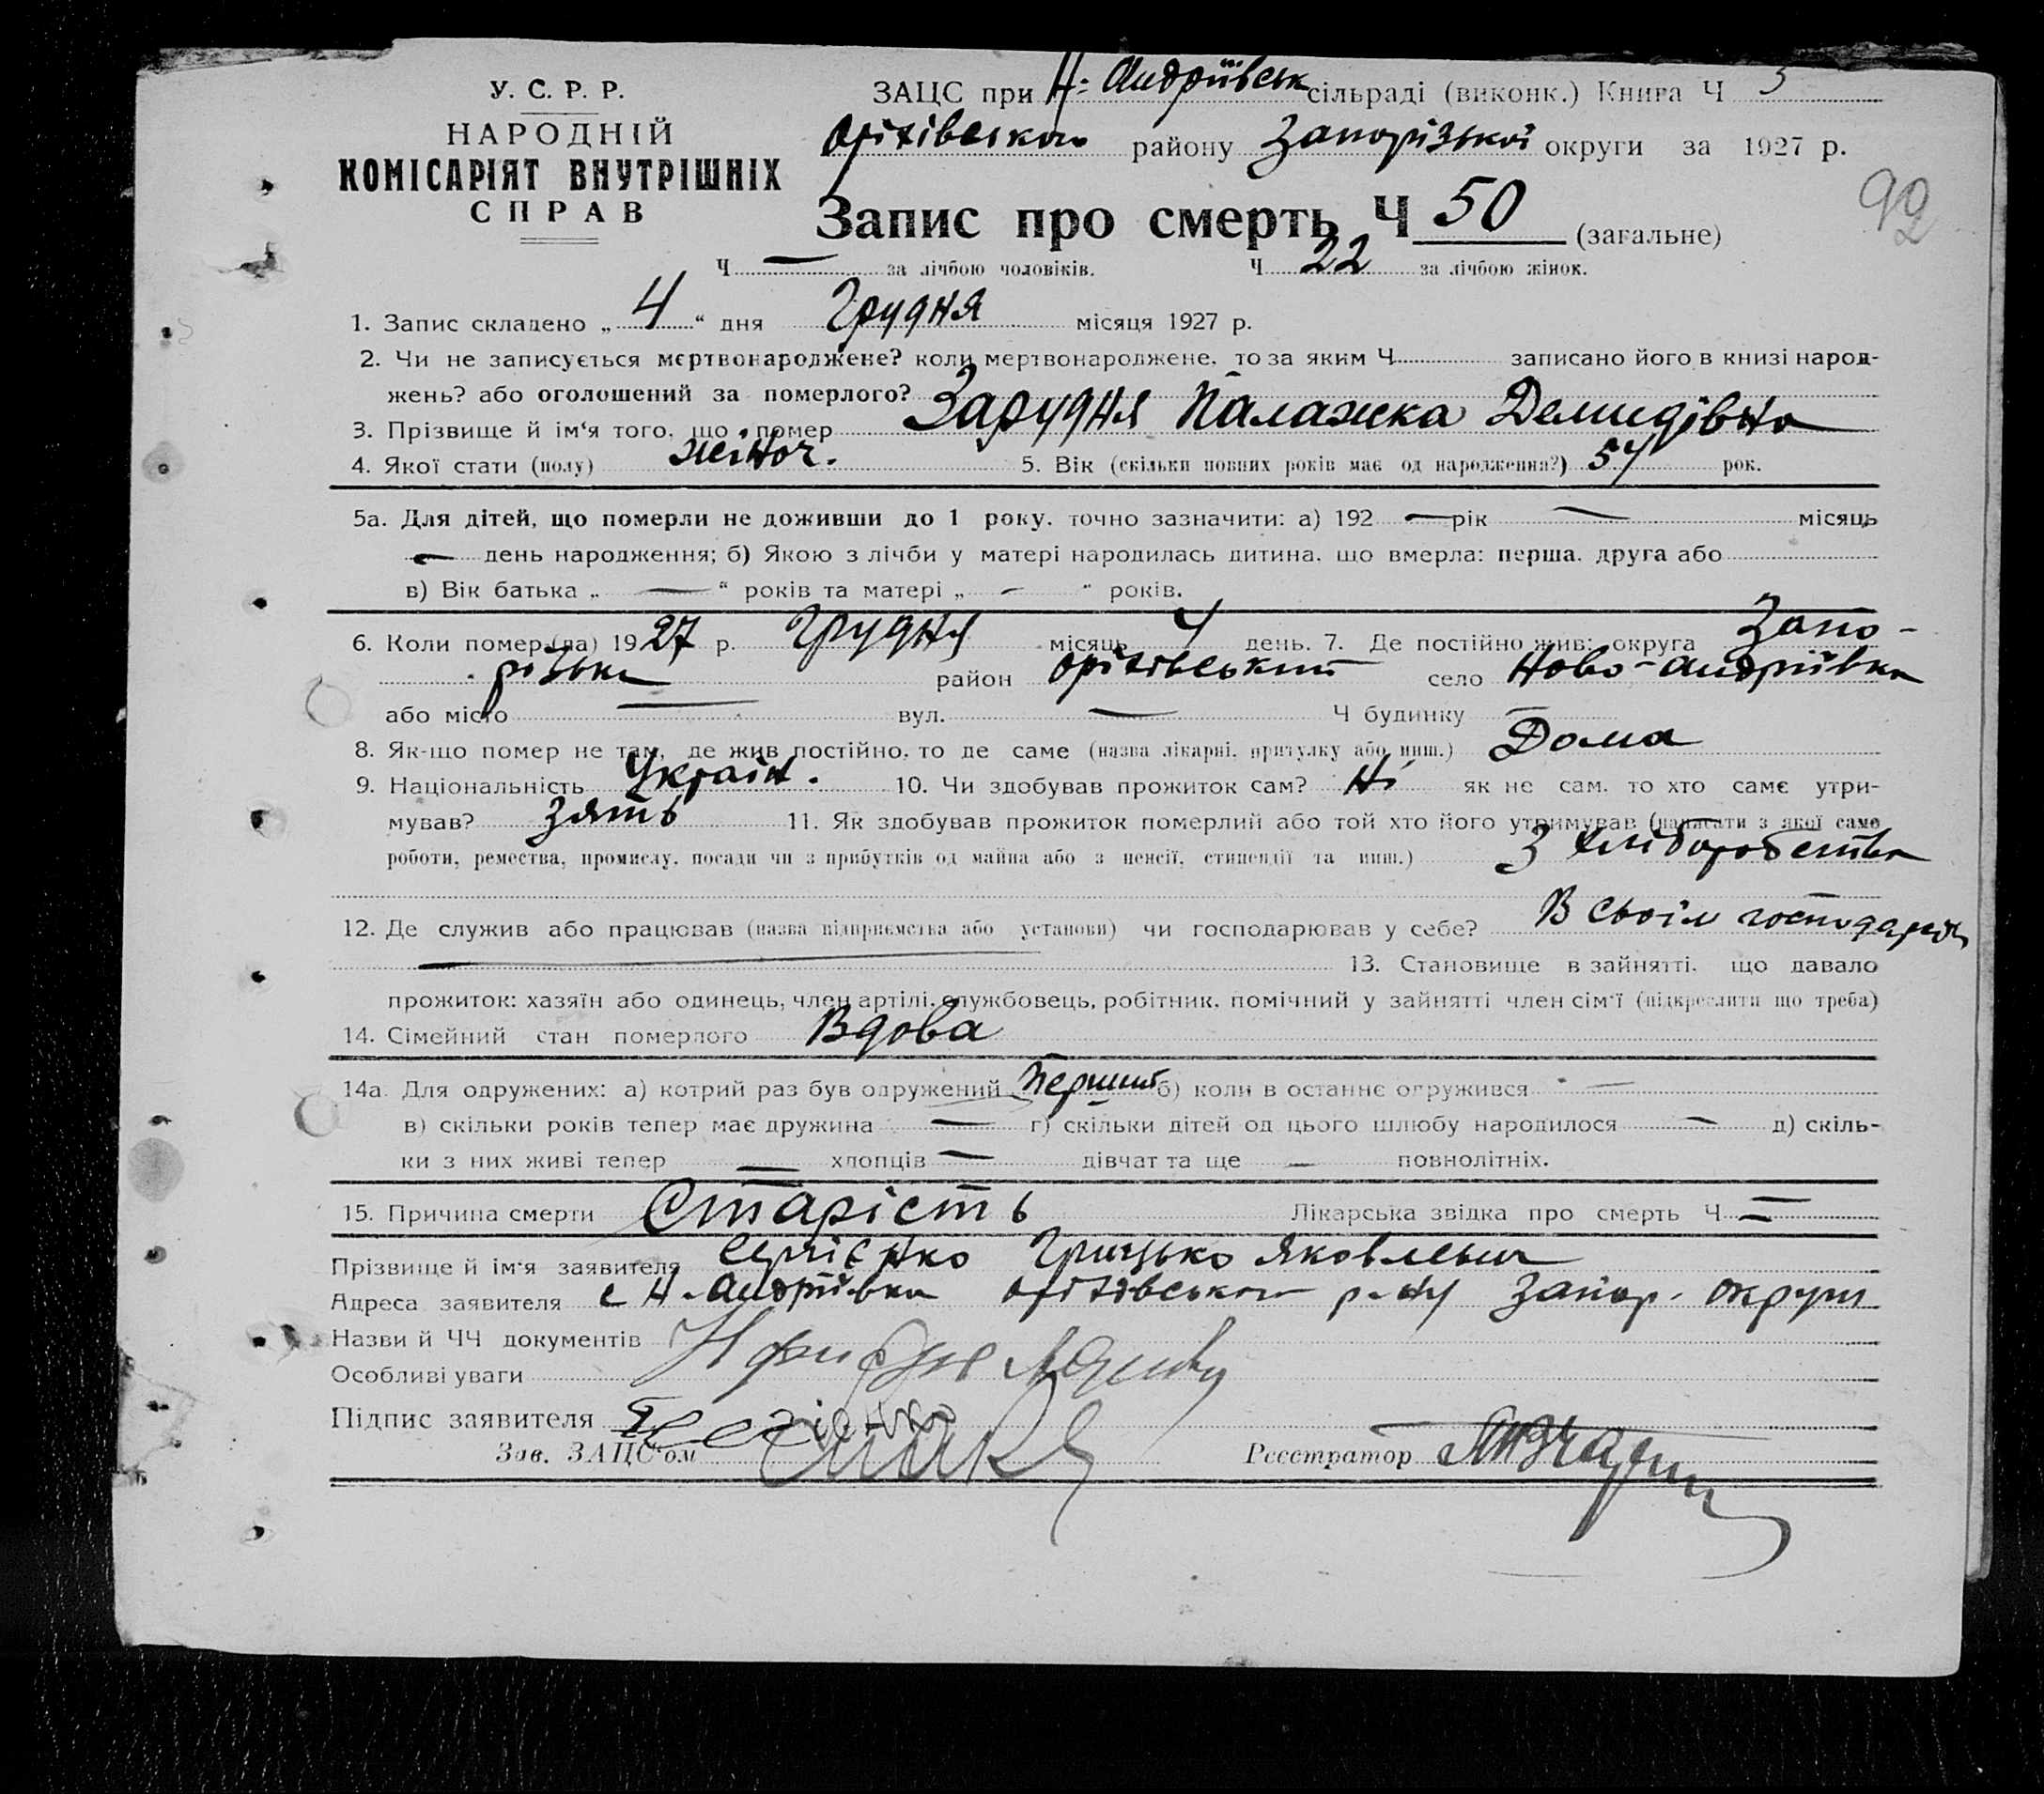 У. С. Р. Р.
НАРОДНІЙ
КОМІСАРІЯТ ВНУТРІШНІХ
СПРАВ
ЗАЦС при Н-Андріївськ сільраді (виконк.) Книга Ч 3
Оріхівського району Запорізької округи за 1927 р.
92
Запис про смерть Ч 50 (загальне)
Ч — за лічбою чоловіків. Ч 22 за лічбою жінок.
1. Запис складено „ 4 “ дня Грудня місяця 1927 р.
2. Чи не записується мертвонароджене? коли мертвонароджене, то за яким Ч записано його в книзі народ-
жень? або оголошений за померлого?
3. Прізвище й ім'я того, що помер Зарудня Палажка Демидівна
4. Якої стати (полу) жіноч. 5. Вік (скільки повних років має од народження?) 57 рок.
5а. Для дітей, що померли не доживши до 1 року, точно зазначити: а) 192 — рік — місяць
— день народження; б) Якою з лічби у матері народилась дитина, що вмерла: перша, друга або
в) Вік батька „ — “ років та матері „ — “ років.
6. Коли помер (ла) 1927 р. Грудня місяць 4 день. 7. Де постійно жив: округа Запо-
різька район Оріхівський село Ново-Андріївка
або місто — вул. — Ч будинку —
8. Як-що помер не там, де жив постійно, то де саме (назва лікарні, притулку або инш.) Дома
9. Національність Україн. 10. Чи здобував прожиток сам? Ні як не сам, то хто саме утри-
мував? Зять 11. Як здобував прожиток померлий або той хто його утримував (написати з якої саме
роботи, ремества, промислу, посади чи з прибутків од майна або з пенсії, стипендії та инш.) З хліборобства
12. Де служив або працював (назва підприємства або установи) чи господарював у себе? В своїм господарстві
— 13. Становище в зайнятті, що давало
прожиток: хазяїн або одинець, член артілі, службовець, робітник, помічний у зайнятті член сім'ї (підкреслити що треба)
14. Сімейний стан померлого Вдова
14а. Для одружених: а) котрий раз був одружений Перший б) коли в останнє одружився —
в) скільки років тепер має дружина — г) скільки дітей од цього шлюбу народилося — д) скіль-
ки з них живі тепер — хлопців — дівчат та ще — повнолітніх.
15. Причина смерти Старість Лікарська звідка про смерть Ч —
Прізвище й ім'я заявителя Сергієнко Грицько Яковлевич
Адреса заявителя с Н-Андріївка Оріхівського р-ну Запор. округи
Назви й ЧЧ документів
Особливі уваги
Підпис заявителя Сергієнко
Зав. ЗАЦС'ом Реєстратор